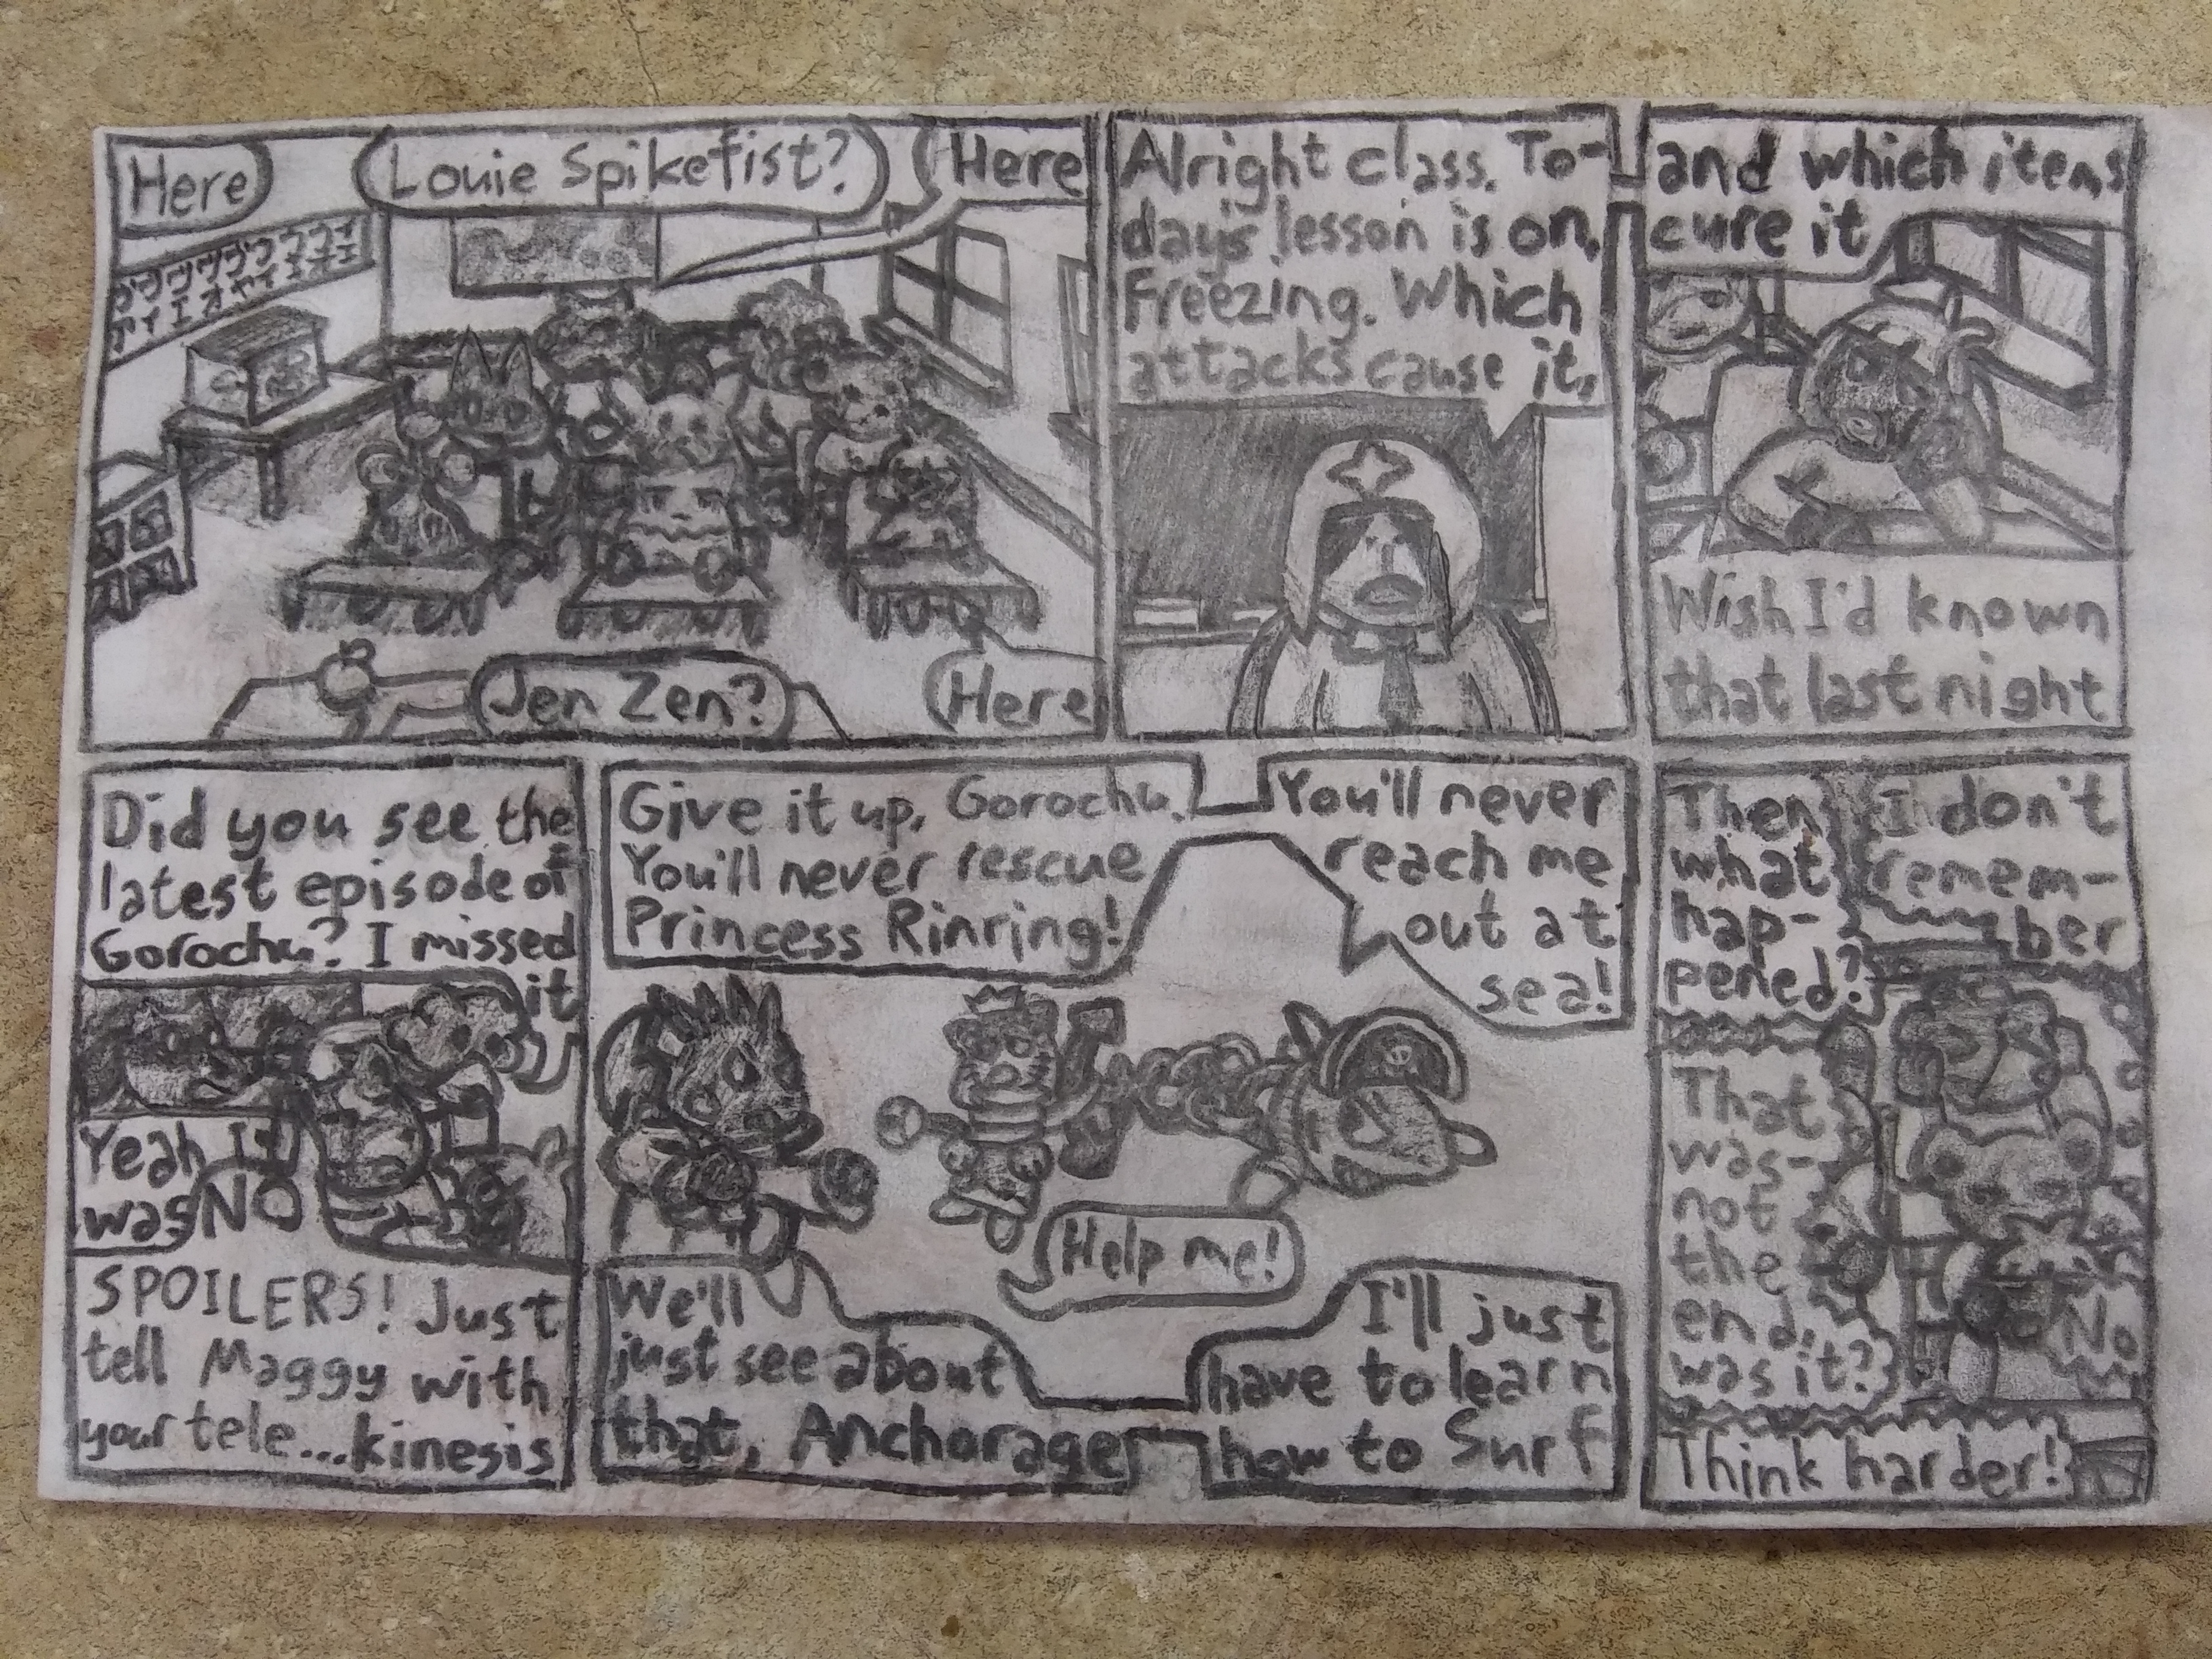 Here
Louie Spikefist?
Here
Jen Zen?
Here
Alright class. To-
day's lesson is on,
Freezing. Which
attacks cause it,
and which items
cure it
Wish I'd known
that last night
Did you see the
latest episode of
Gorochu? I missed
it
Yeah It
was
NO
SPOILERS! Just
tell Maggy with
your tele...kinesis
Give it up, Gorochu.
You'll never rescue
Princess Rinring!
You'll never
reach me
out at
sea!
Help me!
We'll
just see about
that, Anchorage
I'll just
have to learn
how to Surf
Then
what
hap-
pened?
I don't
remem-
ber
That
was-
not
the
end,
was it?
No
Think harder!